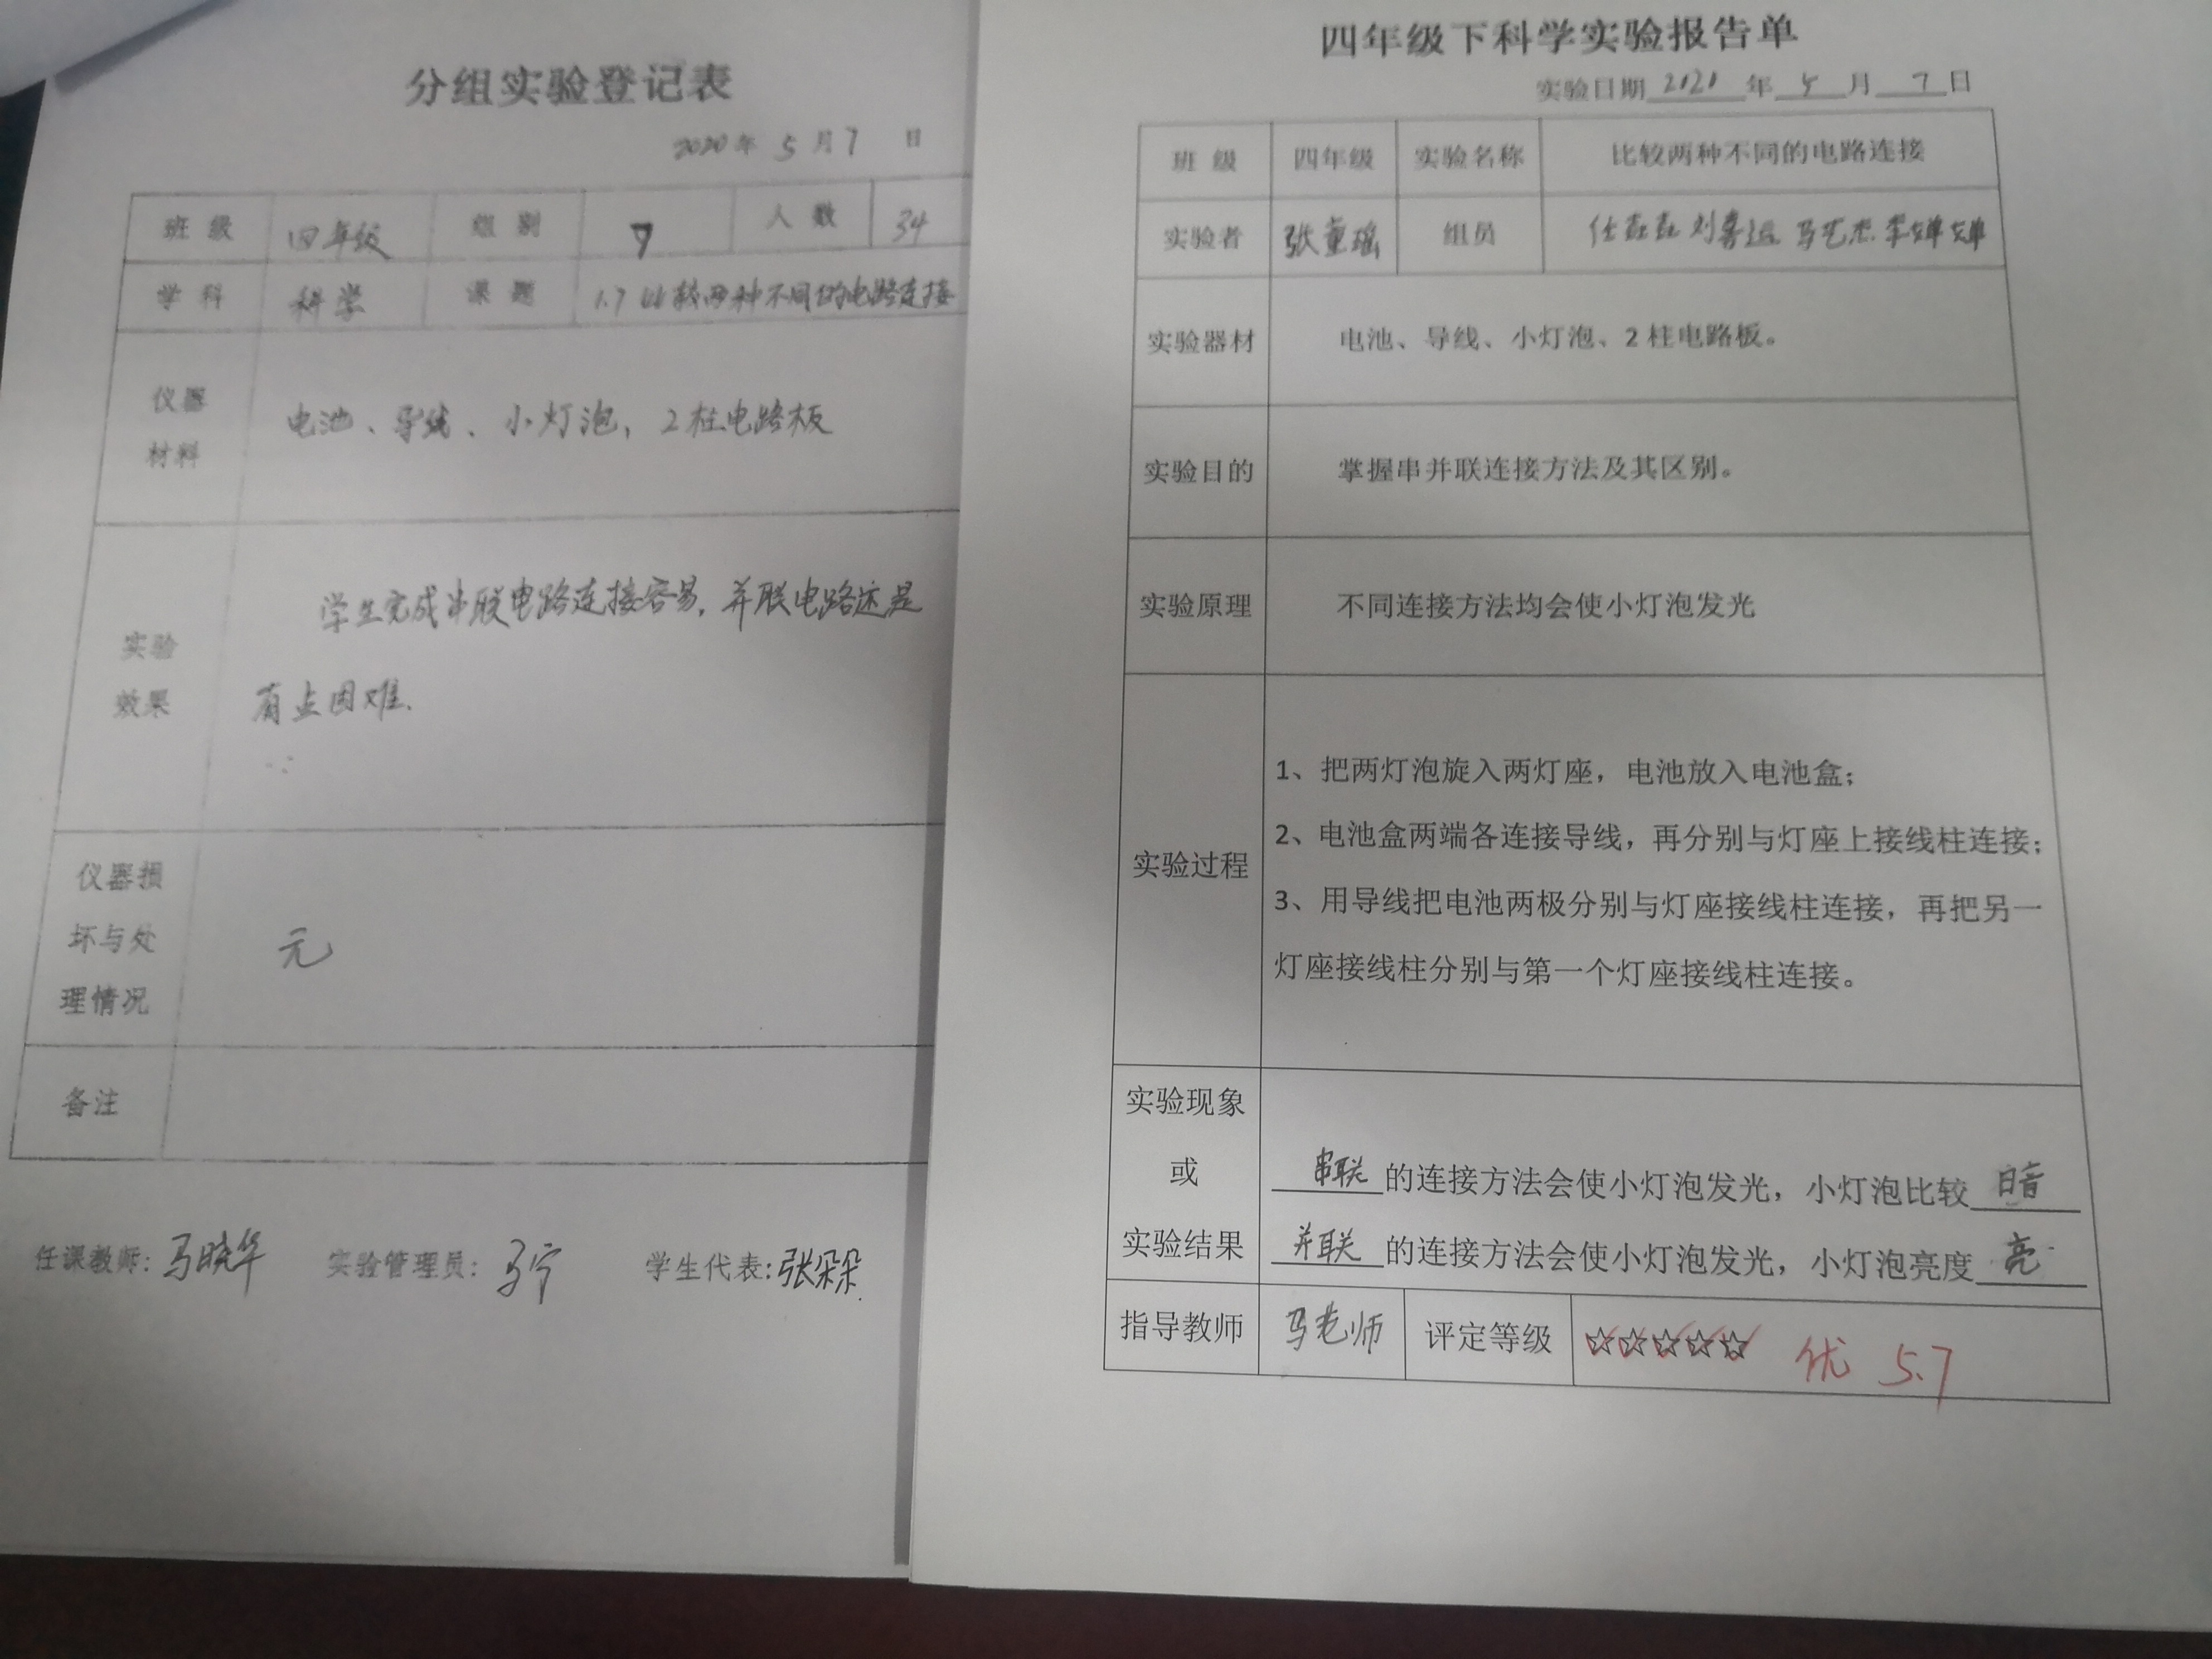 分组实验登记表
2020年 5月7 日
班级 四年级 组别 7 人数 34
学科 科学 课题 1.7 比较两种不同的电路连接
仪器
材料
电池、导线、小灯泡，2柱电路板
实验
效果
学生完成串联电路连接容易，并联电路还是
有点困难.
仪器损
坏与处
理情况
元
备注
任课教师：马晓华 实验管理员：马宁 学生代表：张朵朵
四年级下科学实验报告单
实验日期 2020 年 5 月 7 日
班 级 四年级 实验名称 比较两种不同的电路连接
实验者 张童瑶 组员 任磊磊 刘 马艺杰 李婵婵
实验器材 电池、导线、小灯泡、2柱电路板。
实验目的 掌握串并联连接方法及其区别。
实验原理 不同连接方法均会使小灯泡发光
实验过程
1、把两灯泡旋入两灯座，电池放入电池盒；
2、电池盒两端各连接导线，再分别与灯座上接线柱连接；
3、用导线把电池两极分别与灯座接线柱连接，再把另一
灯座接线柱分别与第一个灯座接线柱连接。
实验现象
或
实验结果
串联的连接方法会使小灯泡发光，小灯泡比较暗
并联的连接方法会使小灯泡发光，小灯泡亮度亮
指导教师 马老师 评定等级 ☆☆☆☆☆ 优 5.7